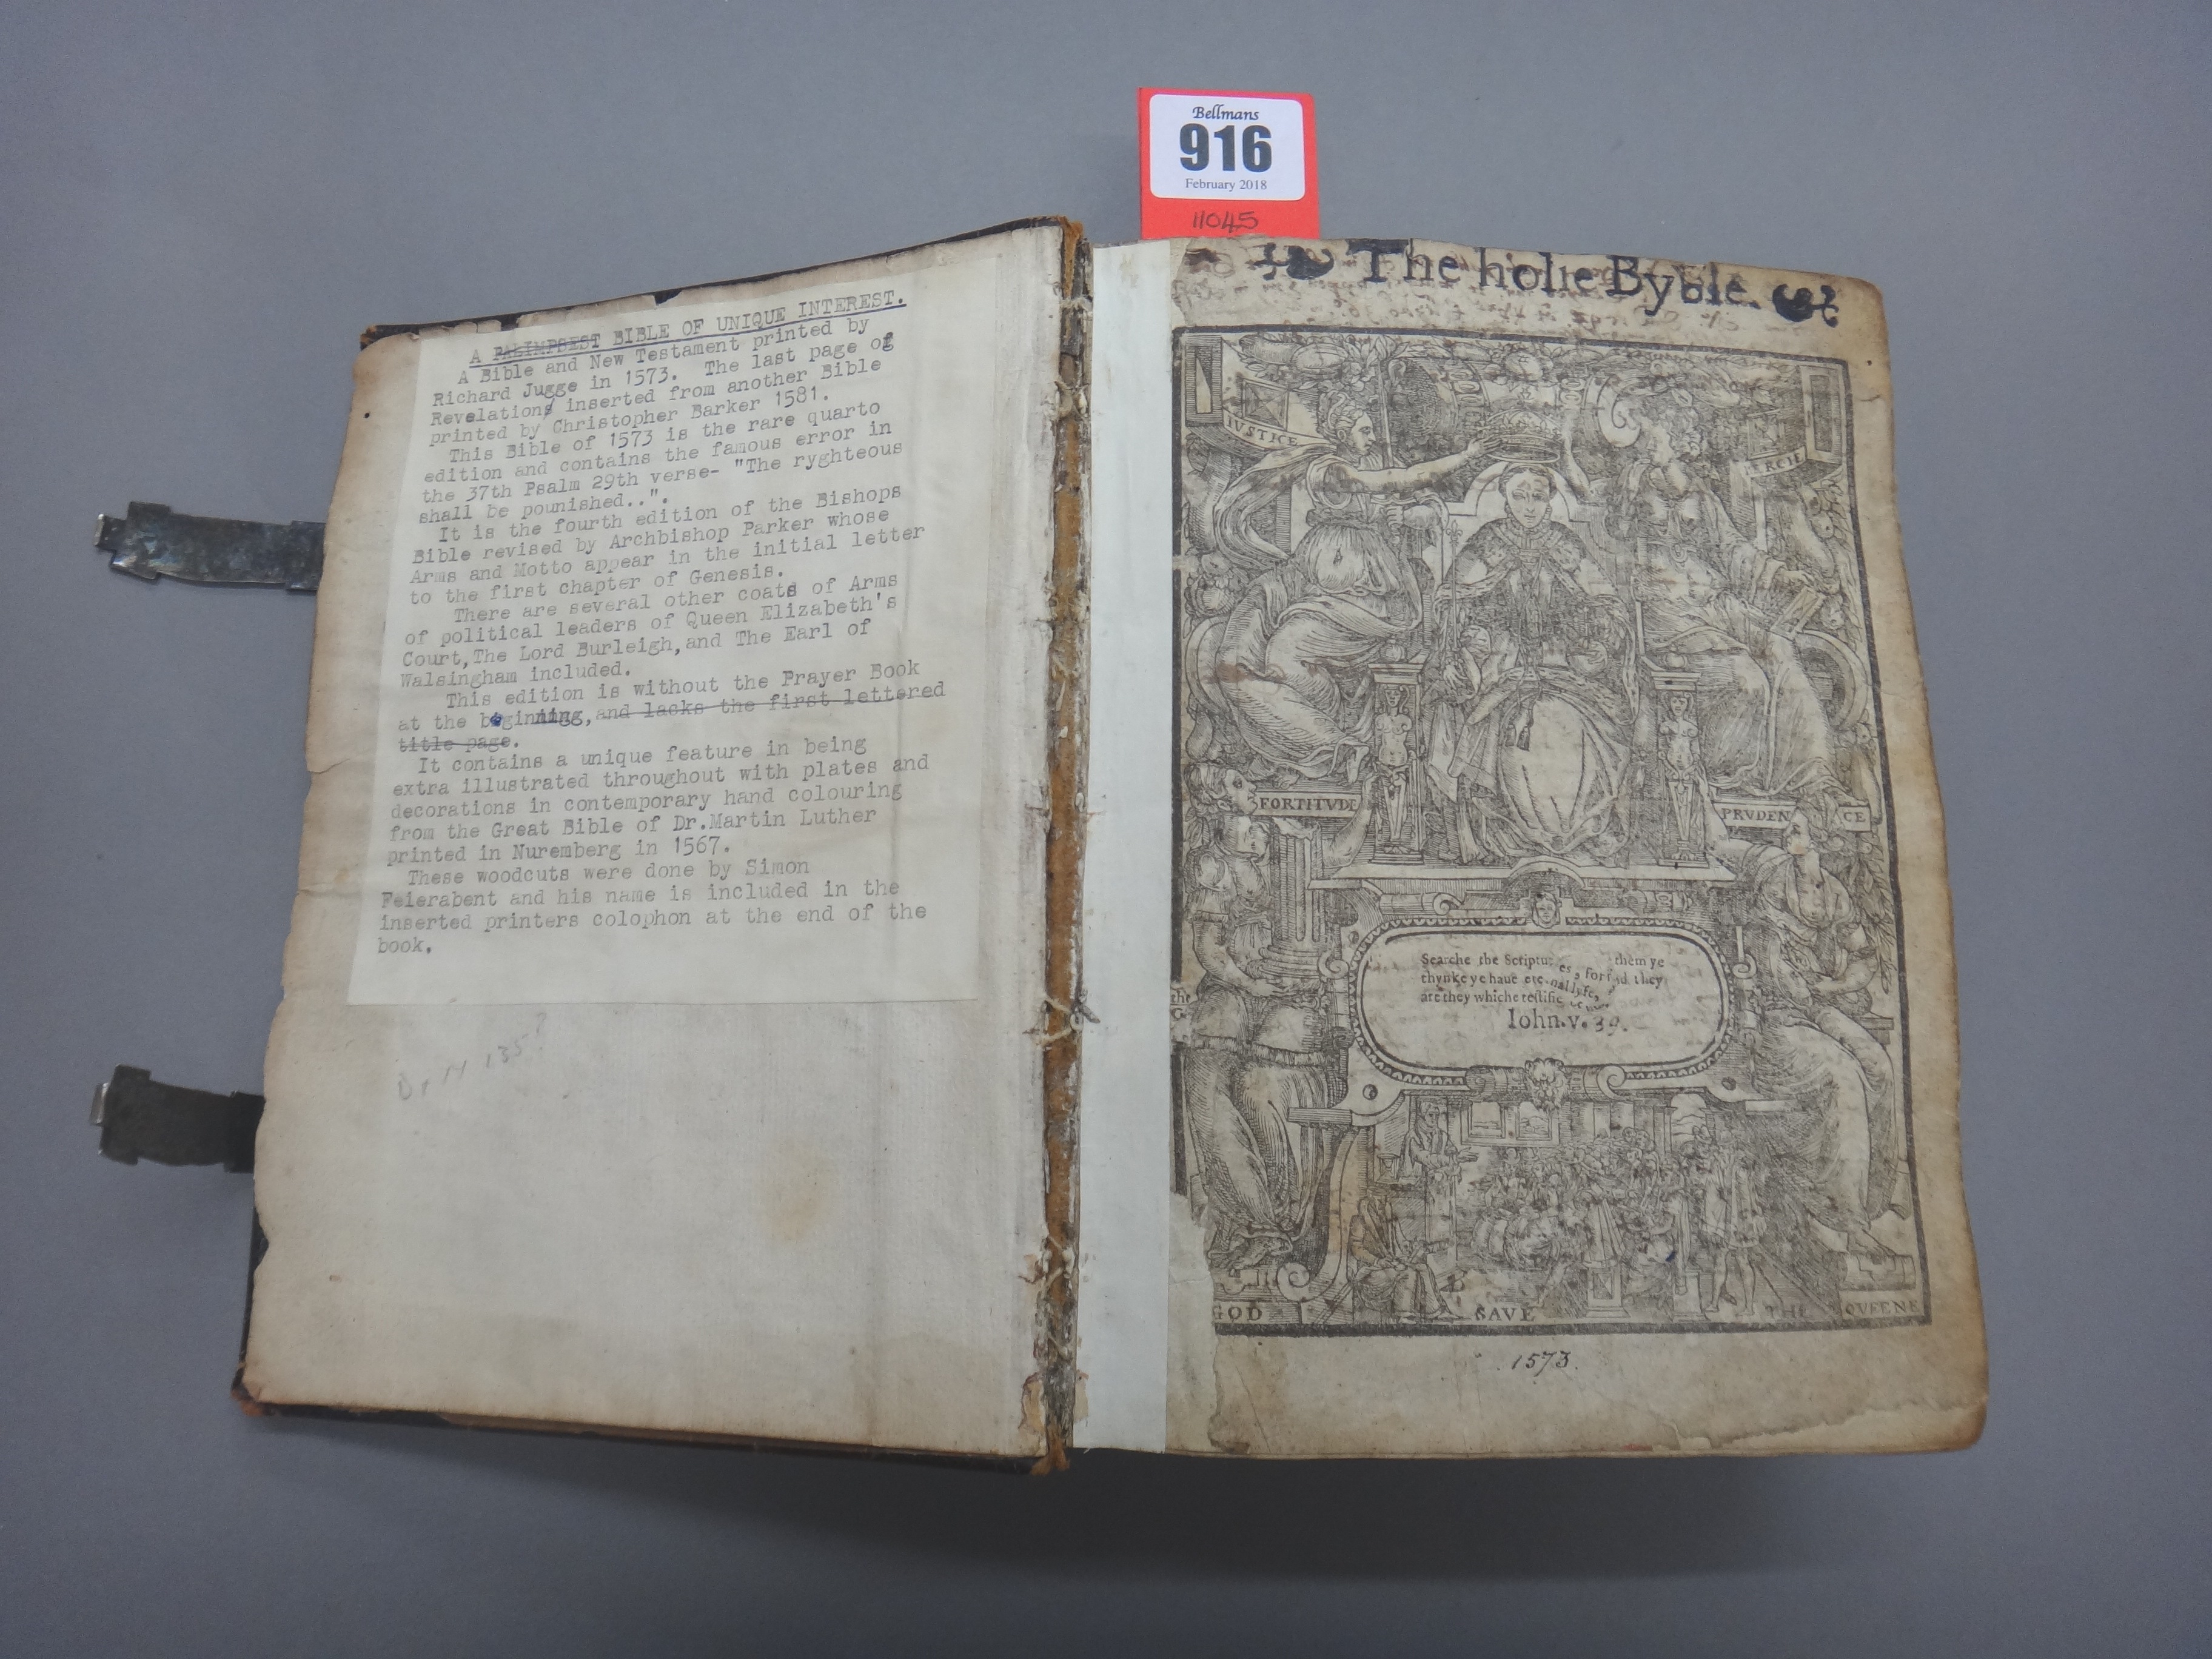 Bellmans
916
February 2018
11045
A PALIMPSEST BIBLE OF UNIQUE INTEREST.
A Bible and New Testament printed by
Richard Jugge in 1573. The last page of
Revelations inserted from another Bible
printed by Christopher Barker 1581.
This Bible of 1573 is the rare quarto
edition and contains the famous error in
the 37th Psalm 29th verse- "The ryghteous
shall be pounished..".
It is the fourth edition of the Bishops
Bible revised by Archbishop Parker whose
Arms and Motto appear in the initial letter
to the first chapter of Genesis.
There are several other coats of Arms
of political leaders of Queen Elizabeth's
Court,The Lord Burleigh,and The Earl of
Walsingham included.
This edition is without the Prayer Book
at the beginning,and lacks the first lettered
title page.
It contains a unique feature in being
extra illustrated throughout with plates and
decorations in contemporary hand colouring
from the Great Bible of Dr.Martin Luther
printed in Nuremberg in 1567.
These woodcuts were done by Simon
Feierabent and his name is included in the
inserted printers colophon at the end of the
book.
The holie Byble.
IVSTICE
MERCIE
FORTITVDE
PRVDENCE
Searche the Scriptures, for in them ye
thynke ye haue eternal lyfe, and they
are they whiche testifie
Iohn.v. 39.
GOD SAVE THE QVEENE
1573.